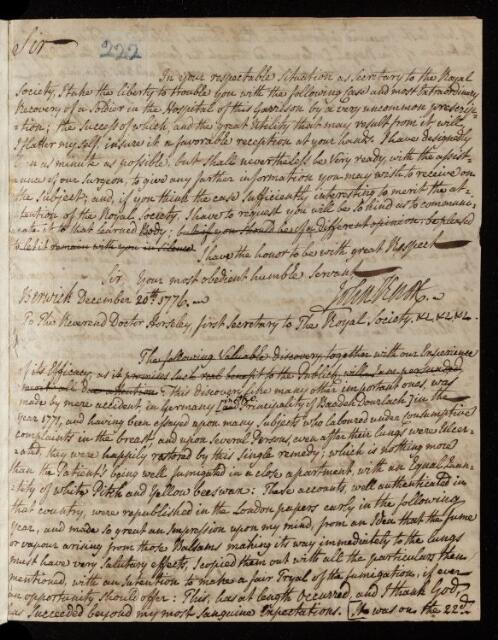 Sir 222
In your respectable Situation as Secretary to the Royal
Society, I take the liberty to trouble you with the following Case and most Extraordinary
Recovery of a Soldier in the Hospital of this Garrison by a very uncommon prescrip-
-tion; the Success of which, and the great Utility that may result from it will
I flatter myself, insure it a favorable reception at your hands. I have designedly
been as minute as possible, but shall nevertheless be very ready, with the assist-
ance of our Surgeon, to give any further information you may wish to receive on
the Subject; and, if you think the case Sufficiently interesting to merit the at-
tention of the Royal Society, I have to request you will be So kind as to communi-
cate it to that learned Body; but if you Should be of a different opinion, be pleased
to let it remain with you in Silence. I have the honor to be with great Respect
Sir, Your most obedient humble Servant
Berwick December 20th. 1776. John Knox
To The Reverend Doctor Horsley, first Secretary to The Royal Society. &c. &c. &c.
The following Valuable discovery together with our Experience
of its Efficacy, as it promises Such real benefit to the Publick, will
all Due attention: this discovery, like many other important ones, was
made by mere accident in Germany (and Principality of Baaden Dourlach) in the
Year 1771, and having been essayed upon many Subject who laboured under Consumptive
Complaints in the breast, and upon Several Persons, even after their lungs were Ulcer-
-ated, they were happily restored by this Single remedy; which is nothing more
than the Patient's being well fumigated in a close apartment, with an Equal Quan-
tity of white Pitch and Yellow beeswax: These accounts, well authenticated in
that country, were republished in the London papers early in the following
Year, and made So great an Impression upon my mind, from an Idea that the fume
or vapour arising from those Balsams making its way immediately to the lungs
must have very Salutary effects, I copied them out with all the particulars then
mentioned, with an Intention to make a fair Tryal of the fumigation, if ever
an opportunity Should offer: This, has at length Occurred, and I thank God,
has Succeeded beyond my most Sanguine Expectations. [It was on the 22d.